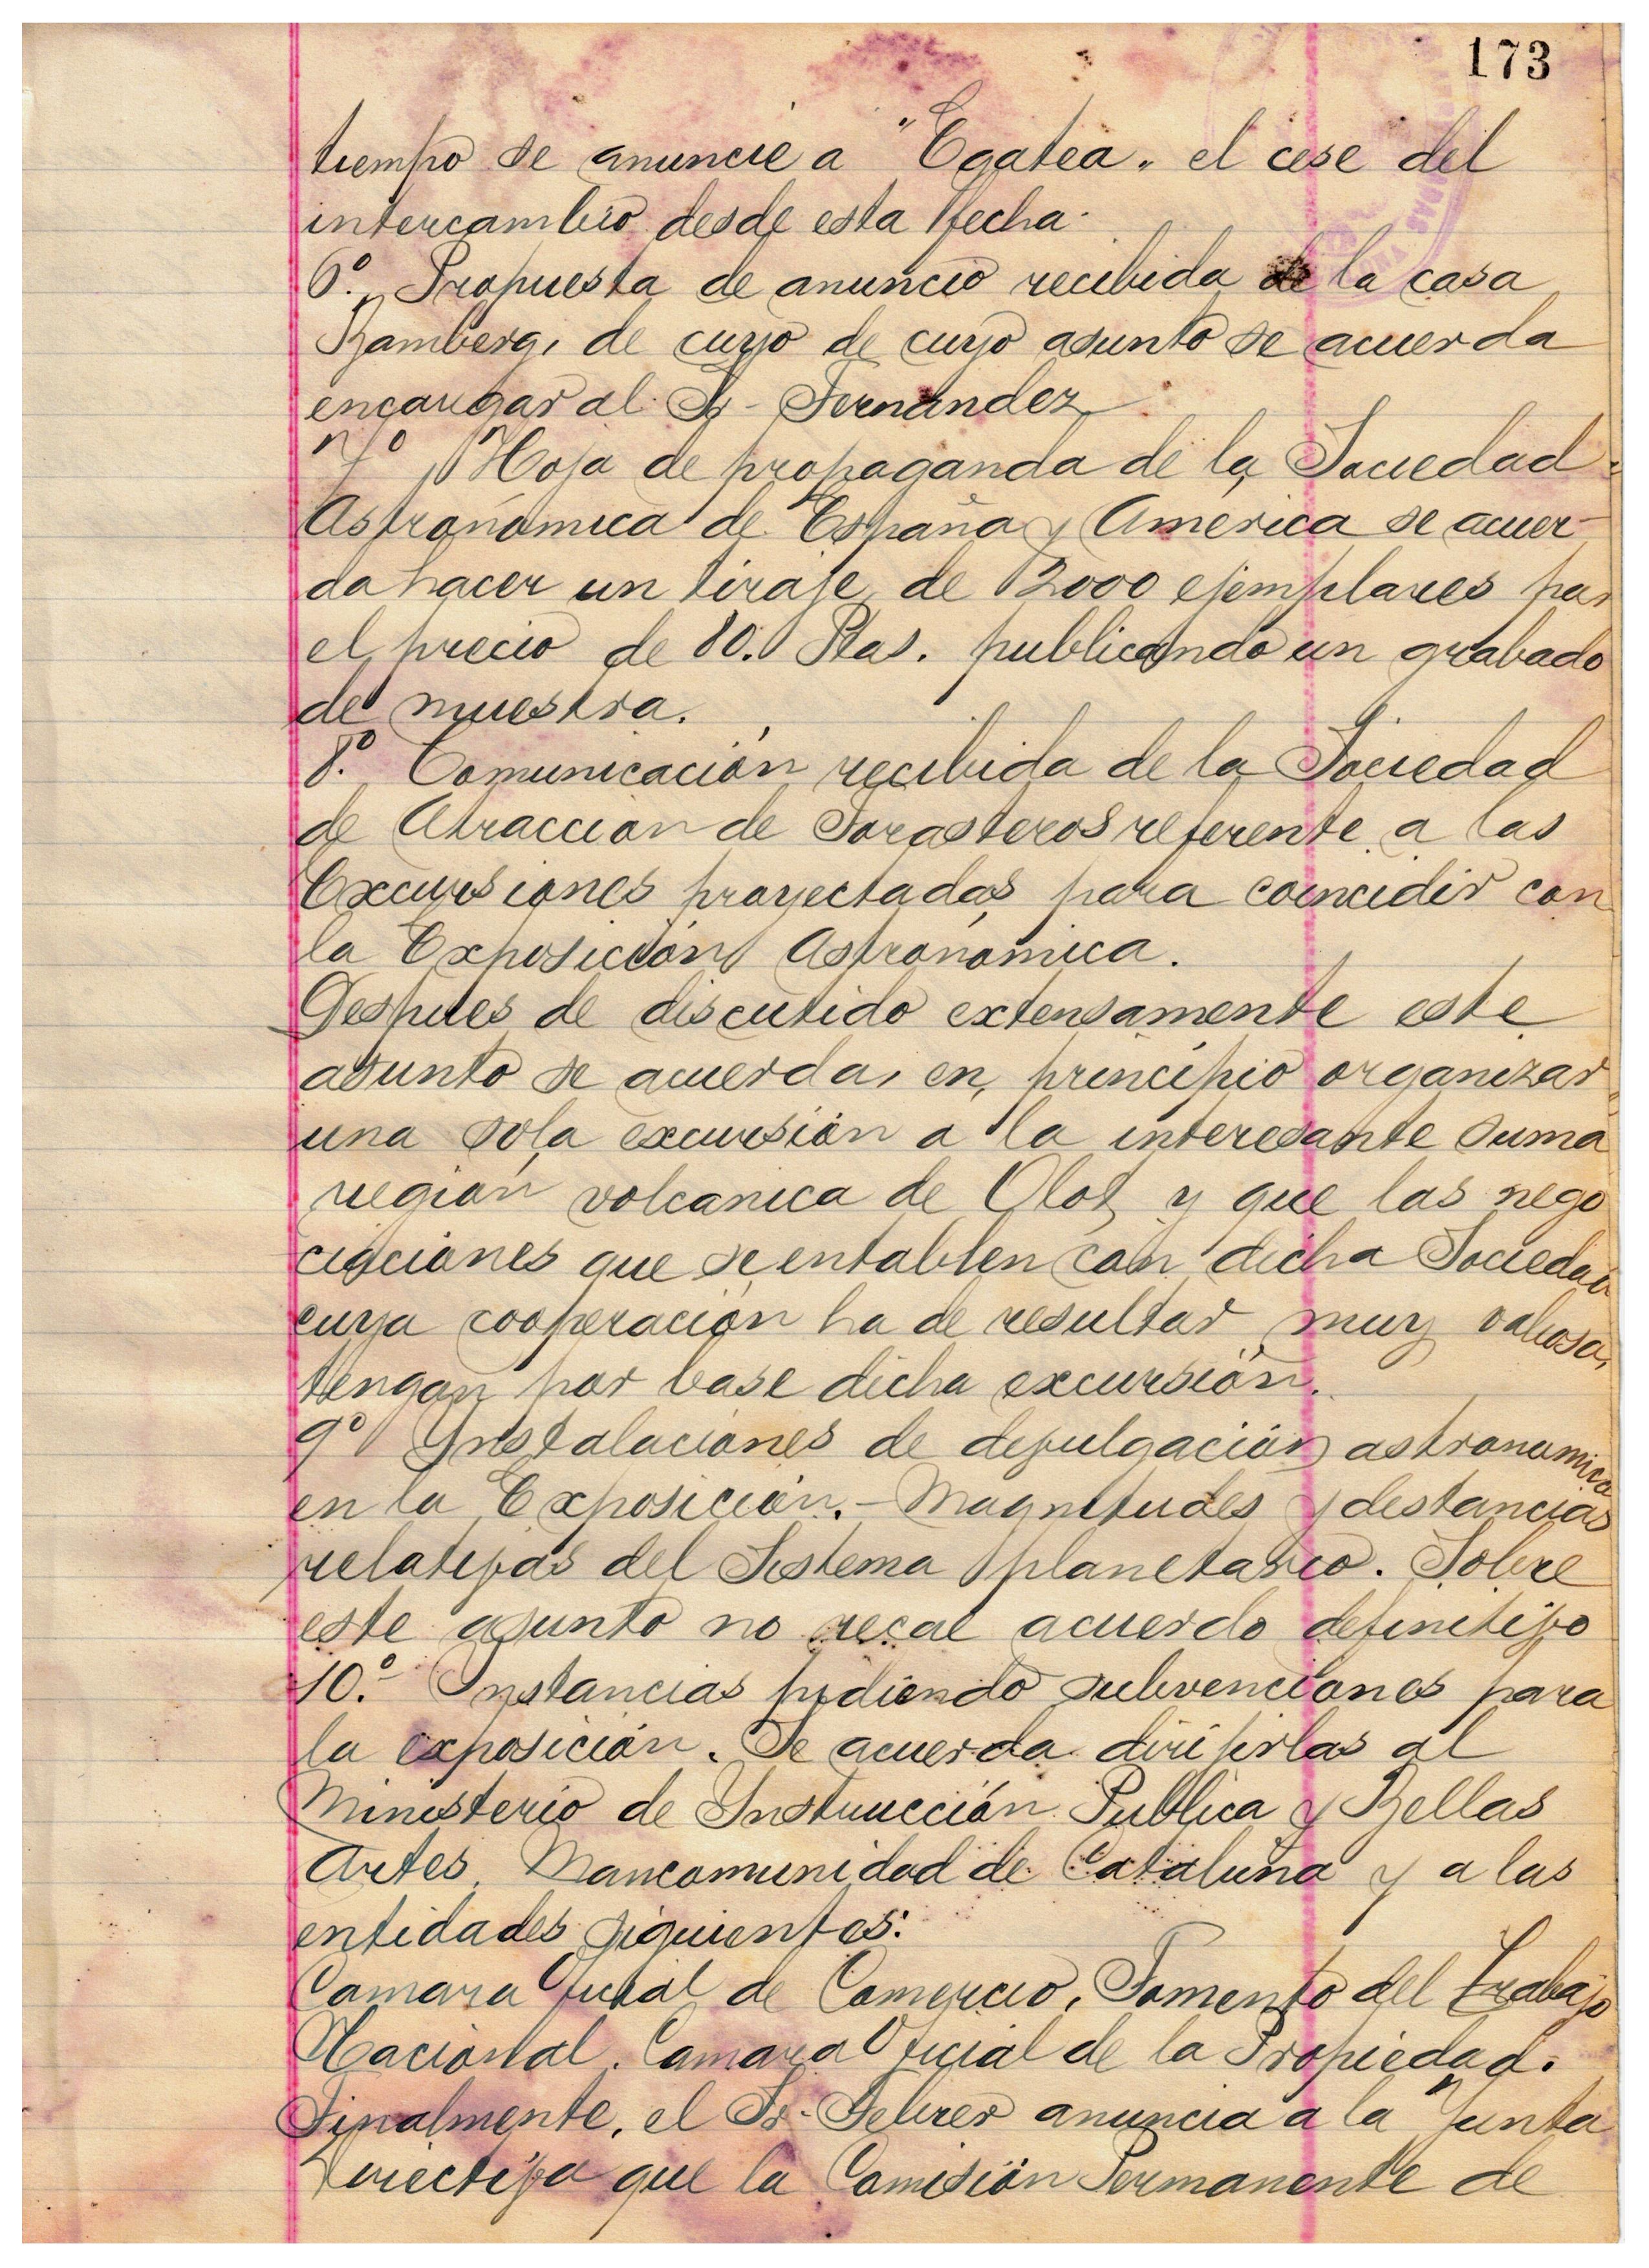 173
tiempo se anuncie a "Egatea" el cese del
intercambio desde esta fecha.
6º. Propuesta de anuncio recibida de la casa
Bamberg, de cuyo de cuyo asunto se acuerda
encargar al Sr. Fernández
7º Hoja de propaganda de la Sociedad
Astronómica de España y America se acuer-
da hacer un tiraje de 2000 ejemplares por
el precio de 80. Ptas. publicando un grabado
de muestra.
8º. Comunicación recibida de la Sociedad
de Atracción de Forasteros referente a las
Excursiones proyectadas para coincidir con
la Exposición Astronómica.
Despues de discutido extensamente este
asunto se acuerda, en principio organizar
una sola excursión a la interesante suma
región volcanica de Olot y que las nego
ciaciones que se entablen con dicha Sociedad
cuya cooperación ha de resultar muy valiosa,
tengan por base dicha excursión.
9º Ynstalaciones de devulgación astronomica
en la Exposición. - Magnitudes y distancias
relativas del Sistema planetario. Sobre
este asunto no recae acuerdo definitivo
10.º Instancias pidiendo subvenciones para
la exposición. Se acuerda dirijirlas al
Ministerio de Ynstrucción Publica y Bellas
Artes, Mancomunidad de Cataluña y a las
entidades siguientes:
Camara Oficial de Comercio, Fomento del Trabajo
Nacional, Camara Oficial de la Propiedad.
Finalmente, el Sr. Febrer anuncia a la Junta
Directiva que la Comisión Permanente de